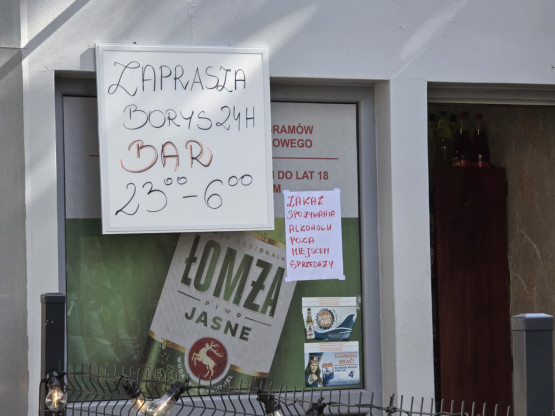 ZAPRASZA
BORYS 24H
BAR
23⁰⁰-6⁰⁰
GRAMÓW
OWEGO
M DO LAT 18
ZAKAZ
SPOŻYWANIA
ALKOHOLU
POZA
MIEJSCEM
SPRZEDAŻY
ŁOMŻA
PIWO
JASNE